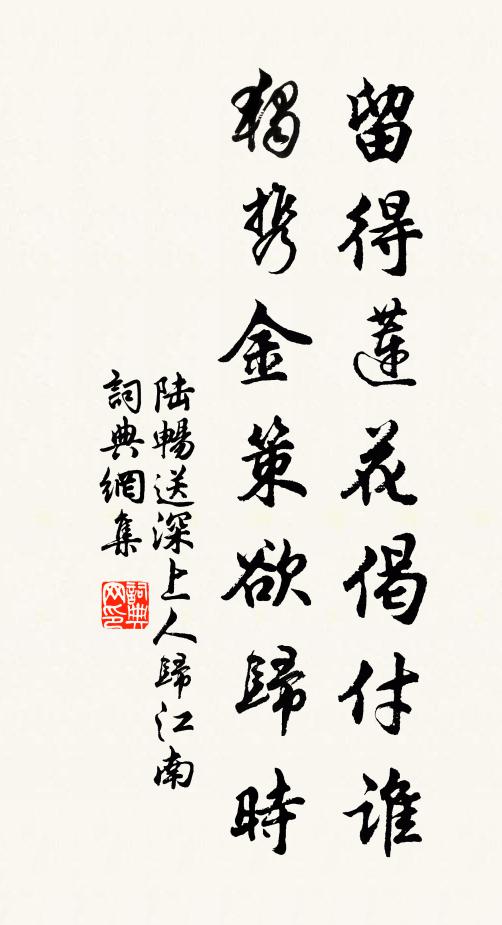 留得蓮花偈付誰
獨携金策欲歸時
陆暢送深上人歸江南
詞典網集
詞典网印